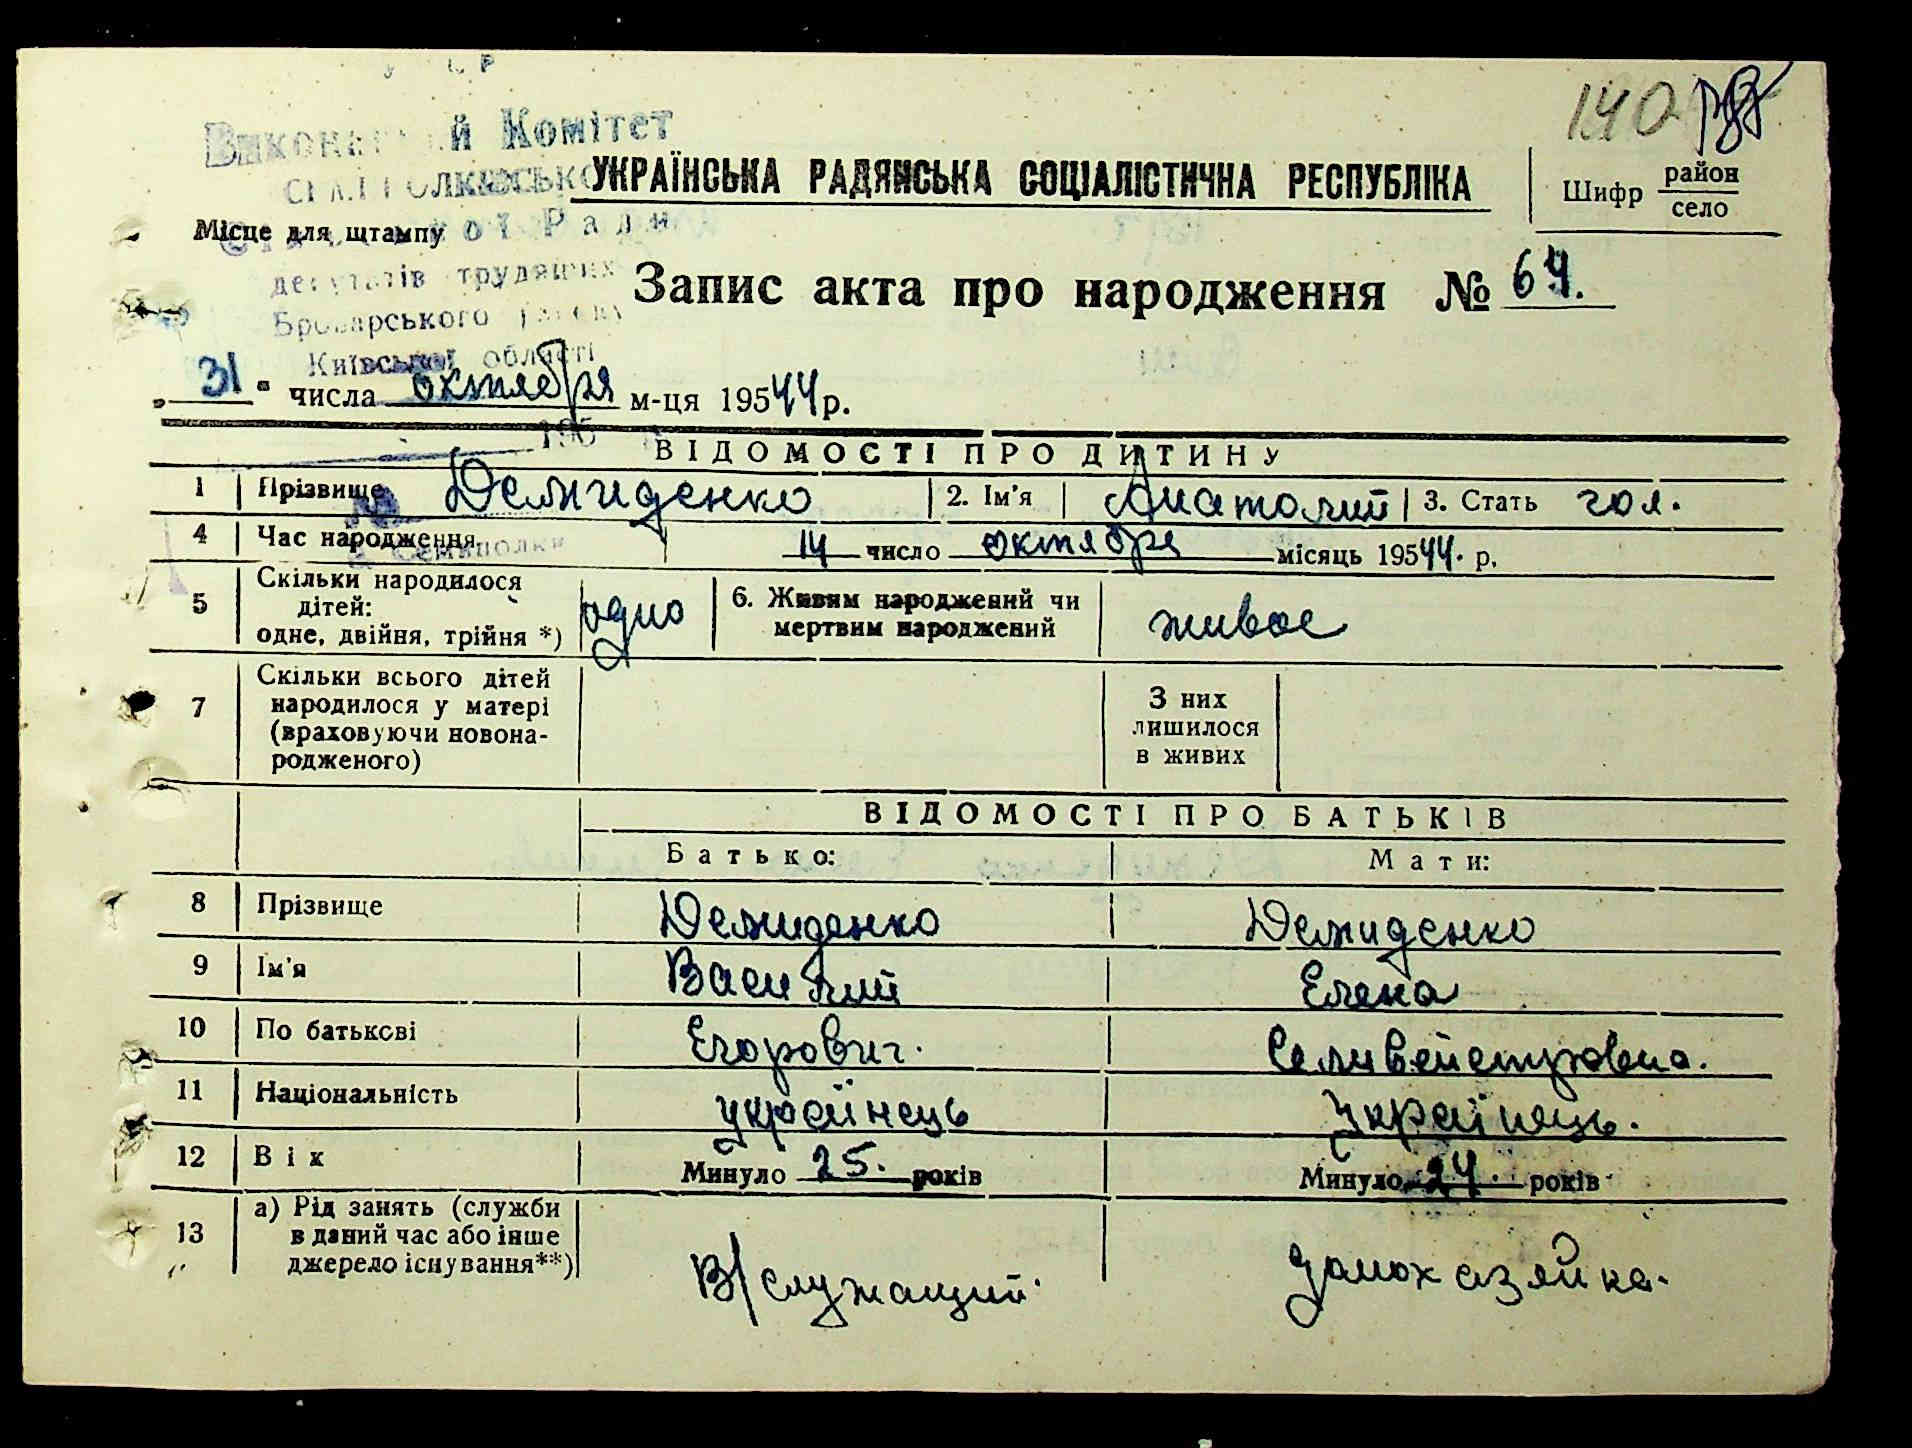 140
Виконавчий Комітет
УКРАЇНСЬКА РАДЯНСЬКА СОЦІАЛІСТИЧНА РЕСПУБЛІКА
Шифр район
село
Місце для штампу ої Ради
депутатів трудящих
Запис акта про народження № 64.
Броварського району
Київської області
31 числа октября м-ця 195 44 р.
195
ВІДОМОСТІ ПРО ДИТИНУ
1 Прізвище Демиденко 2. Ім'я Анатолий 3. Стать чол.
4 Час народження 14 число октября місяць 195 44. р.
с. Семиполки
5 Скільки народилося дітей: одне, двійня, трійня *) одно 6. Живим народжений чи мертвим народжений живое
7 Скільки всього дітей народилося у матері (враховуючи новонародженого) З них лишилося в живих
ВІДОМОСТІ ПРО БАТЬКІВ
Батько: Мати:
8 Прізвище Демиденко Демиденко
9 Ім'я Василий Елена
10 По батькові Егорович. Селивейстровна.
11 Національність українець Українець.
12 Вік Минуло 25. років Минуло 24. років
13 а) Рід занять (служби в даний час або інше джерело існування**) В/служащий. домохазяйка.